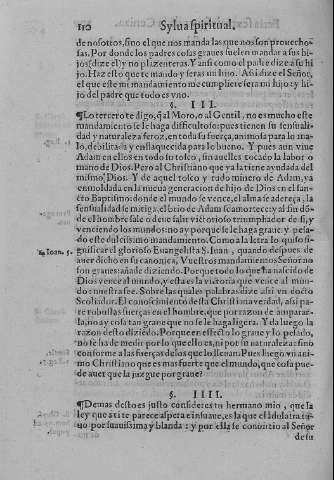 110 Sylua spiritual.
de nosotros, sino el que nos manda las que nos son prouecho-
sas. Por donde los padres cosas graues suelen mandar a sus hi-
jos (dize el) y no plazenteras. Y ansi como el padre dize a su hi
jo. Haz esto que te mando y seras mi hijo. Asi dize el Señor,
el que este mi mandamiento me cumpliere sera mi hijo: y hi-
jo del padre que todo es vno.
§. III.
¶Lo tercero te digo, que al Moro, o al Gentil, no es mucho este
mandamiento se le haga dificultoso: pues tienen su sensuali-
dad y naturaleza feroz, en toda su fuerça, animosa para lo ma-
lo, debilitada y enflaquecida para lo bueno. Y pues aun viue
Adam en ellos en todo su tosco, sin auelles tocado la labor o
mano de Dios. Pero al Christiano que ya la tiene ayudada del
mismo Dios. Y de aquel tosco y rudo minero de Adam, ya
enmoldada en la nueua generacion de hijo de Dios en el san-
cto Baptismo: donde el mundo se vence, el alma se adereça, la
sensualidad se mitiga, el brio de Adam se amortece: y al fin dõ-
de el hombre sale o deue salir victorioso triumphador de si, y
venciendo los mundos: no ay porque se le haga graue y pe-
sado este dulcissimo mandamiento. Como a la letra lo quiso si-
gnificar el glorioso Euangelista S. Iuan, quando despues de
1. Ioan. 5.
auer dicho en su canonica, Y vuestros mandamientos Señor no
son graues: añade diziendo. Porque todo lo que ha nascido de
Dios vence al mundo, y esta es la victoria que vence al mun-
do: nuestra fee. Sobre las quales palabras dize asi vn docto
Scoliador. El conoscimiento desta Christiana verdad, asi pa-
re robustas fuerças en el hombre, que por razon de ampara-
lla, no ay cosa tan graue que no se le haga ligera. Y da luego la
razon desto diziẽdo. Porque en efecto lo graue y lo pesado,
no se ha de medir por lo que ello es, ni por su naturaleza: sino
conforme a las fuerças de los que lo lleuan. Pues luego vn ani-
mo Christiano que es mas fuerte que el mundo, que cosa pue-
de auer que la juzgue por graue?
§. IIII.
¶Demas desto es justo consideres tu hermano mio, que la
ley que a ti te parece aspera e insuaue, es la que el Idolatra tu-
uo por suauissima y blanda: y por ella se conuirtio al Señor
de su